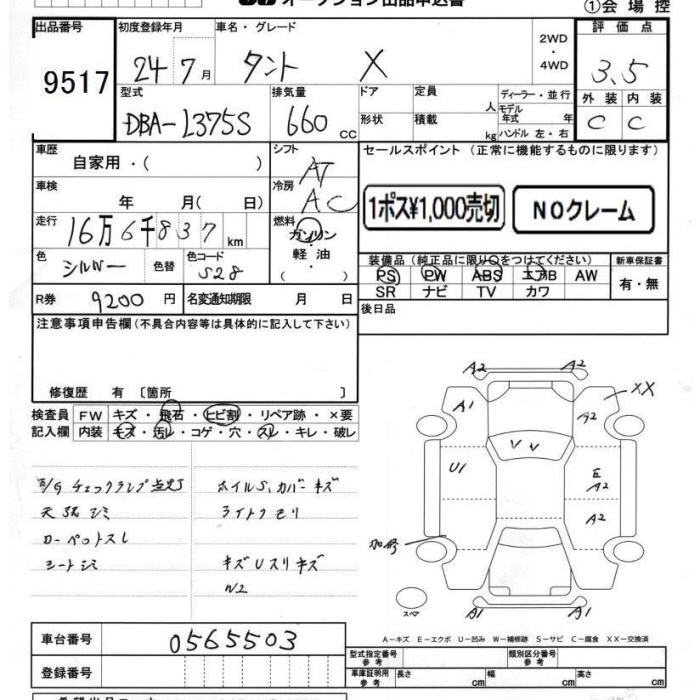 オークション出品申込書
①会場控
出品番号
9517
初度登録年月
24 7月
車名・グレード
タント X
2WD
・
4WD
評価点
3.5
外装 内装
C C
型式
DBA-L375S
排気量
660 cc
ドア
形状
定員
人
積載
kg
ディーラー・並行
モデル
年式 年
ハンドル 左・右
車歴
自家用・( )
シフト
AT
セールスポイント (正常に機能するものに限ります)
車検
年 月( 日)
冷房
AC
1ポス¥1,000売切
NOクレーム
走行
16万6千837km
燃料
ガソリン
・
軽油
( ・ )
色
シルバー
色替
色コード
S28
装備品(純正品に限り○をつけてください)
PS PW ABS エアB AW
SR ナビ TV カワ
新車保証書
有・無
R券
9200円
名変通知期限 月 日
後日品
注意事項申告欄(不具合内容等は具体的に記入して下さい)
修復歴 有 〔箇所 〕
検査員
記入欄
FW キズ・飛石・ヒビ割・リペア跡・×要
内装 キズ・汚レ・コゲ・穴・スレ・キレ・破レ
E/G チェックランプ点灯
天張シミ
カーペットスレ
シートシミ
ホイルS,カバーキズ
ライトクモリ
キズUスリキズ
W2
A2 A2
A1
XX
A2
U1
E
A2
A2
A1 A1
スペア
A-キズ E-エクボ U-凹み W-補修跡 S-サビ C-腐食 XX-交換済
車台番号
0565503
登録番号
型式指定番号
参考
類別区分番号
参考
車庫証明用
参考
長さ cm
幅 cm
高さ cm